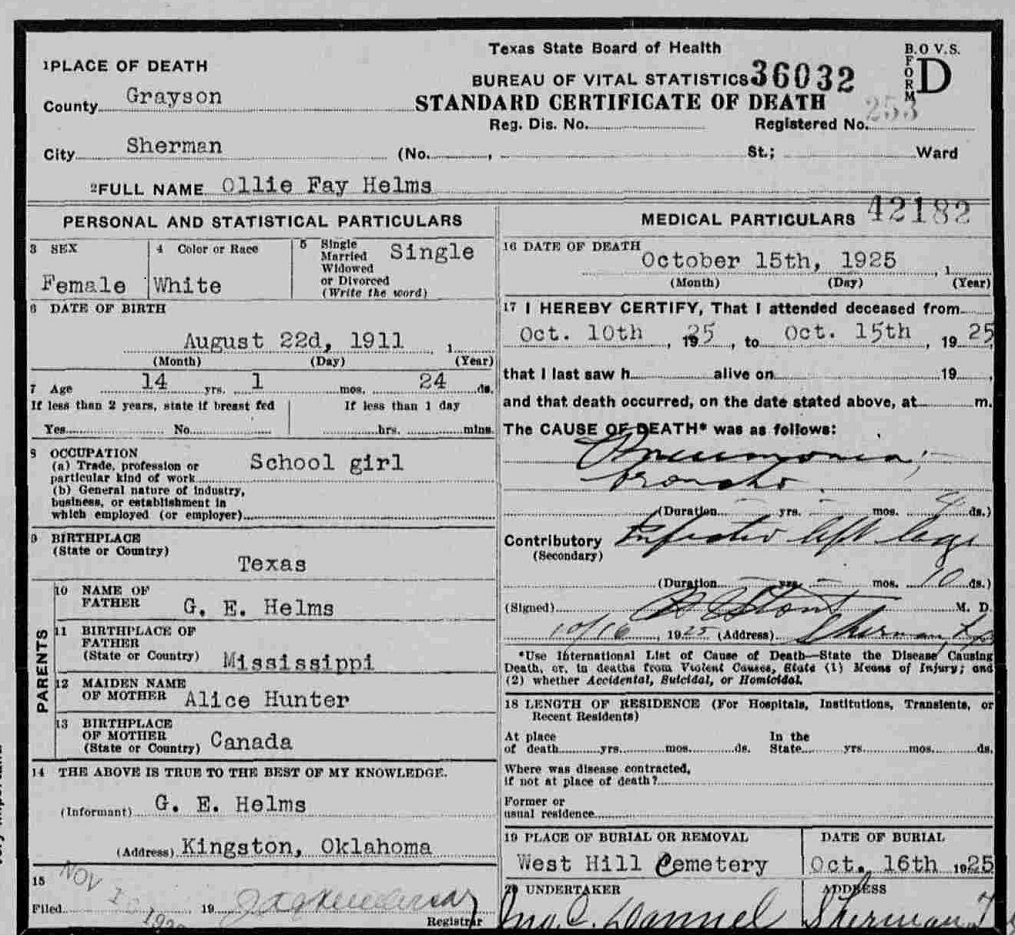 Texas State Board of Health
B. O V. S.
1 PLACE OF DEATH
BUREAU OF VITAL STATISTICS 36032
FORM D
County Grayson
STANDARD CERTIFICATE OF DEATH
253
Reg. Dis. No. Registered No.
City Sherman (No. , St.; Ward
2 FULL NAME Ollie Fay Helms
PERSONAL AND STATISTICAL PARTICULARS
3 SEX
Female
4 Color or Race
White
5 Single
Married
Widowed
or Divorced
(Write the word)
Single
6 DATE OF BIRTH
August 22d, 1911 , 1
(Month) (Day) (Year)
7 Age 14 yrs. 1 mos. 24 ds.
If less than 2 years, state if breast fed
Yes No
If less than 1 day
hrs. mins.
8 OCCUPATION
(a) Trade, profession or
particular kind of work School girl
(b) General nature of industry,
business, or establishment in
which employed (or employer)
9 BIRTHPLACE
(State or Country)
Texas
PARENTS
10 NAME OF
FATHER G. E. Helms
11 BIRTHPLACE OF
FATHER
(State or Country) Mississippi
12 MAIDEN NAME
OF MOTHER Alice Hunter
13 BIRTHPLACE
OF MOTHER
(State or Country) Canada
14 THE ABOVE IS TRUE TO THE BEST OF MY KNOWLEDGE.
(Informant) G. E. Helms
(Address) Kingston, Oklahoma
15
NOV
Filed 19
Registrar
MEDICAL PARTICULARS 42182
16 DATE OF DEATH
October 15th, 1925 , 1
(Month) (Day) (Year)
17 I HEREBY CERTIFY, That I attended deceased from
Oct. 10th , 1925 , to Oct. 15th , 1925
that I last saw h alive on 19 ,
and that death occurred, on the date stated above, at m.
The CAUSE OF DEATH* was as follows:
Pneumonia,
broncho.
(Duration yrs. mos. ds.)
Contributory Infected left leg
(Secondary)
(Duration yrs. mos. 10 ds.)
(Signed) M. D.
10/16 , 1925 (Address) Sherman
*Use International List of Cause of Death—State the Disease Causing
Death, or, in deaths from Violent Causes, State (1) Means of Injury; and
(2) whether Accidental, Suicidal, or Homicidal.
18 LENGTH OF RESIDENCE (For Hospitals, Institutions, Transients, or
Recent Residents)
At place
of death yrs. mos. ds.
In the
State yrs. mos. ds.
Where was disease contracted,
if not at place of death?
Former or
usual residence
19 PLACE OF BURIAL OR REMOVAL
West Hill Cemetery
DATE OF BURIAL
Oct. 16th 1925
20 UNDERTAKER
Jno. C. Dannel
ADDRESS
Sherman T